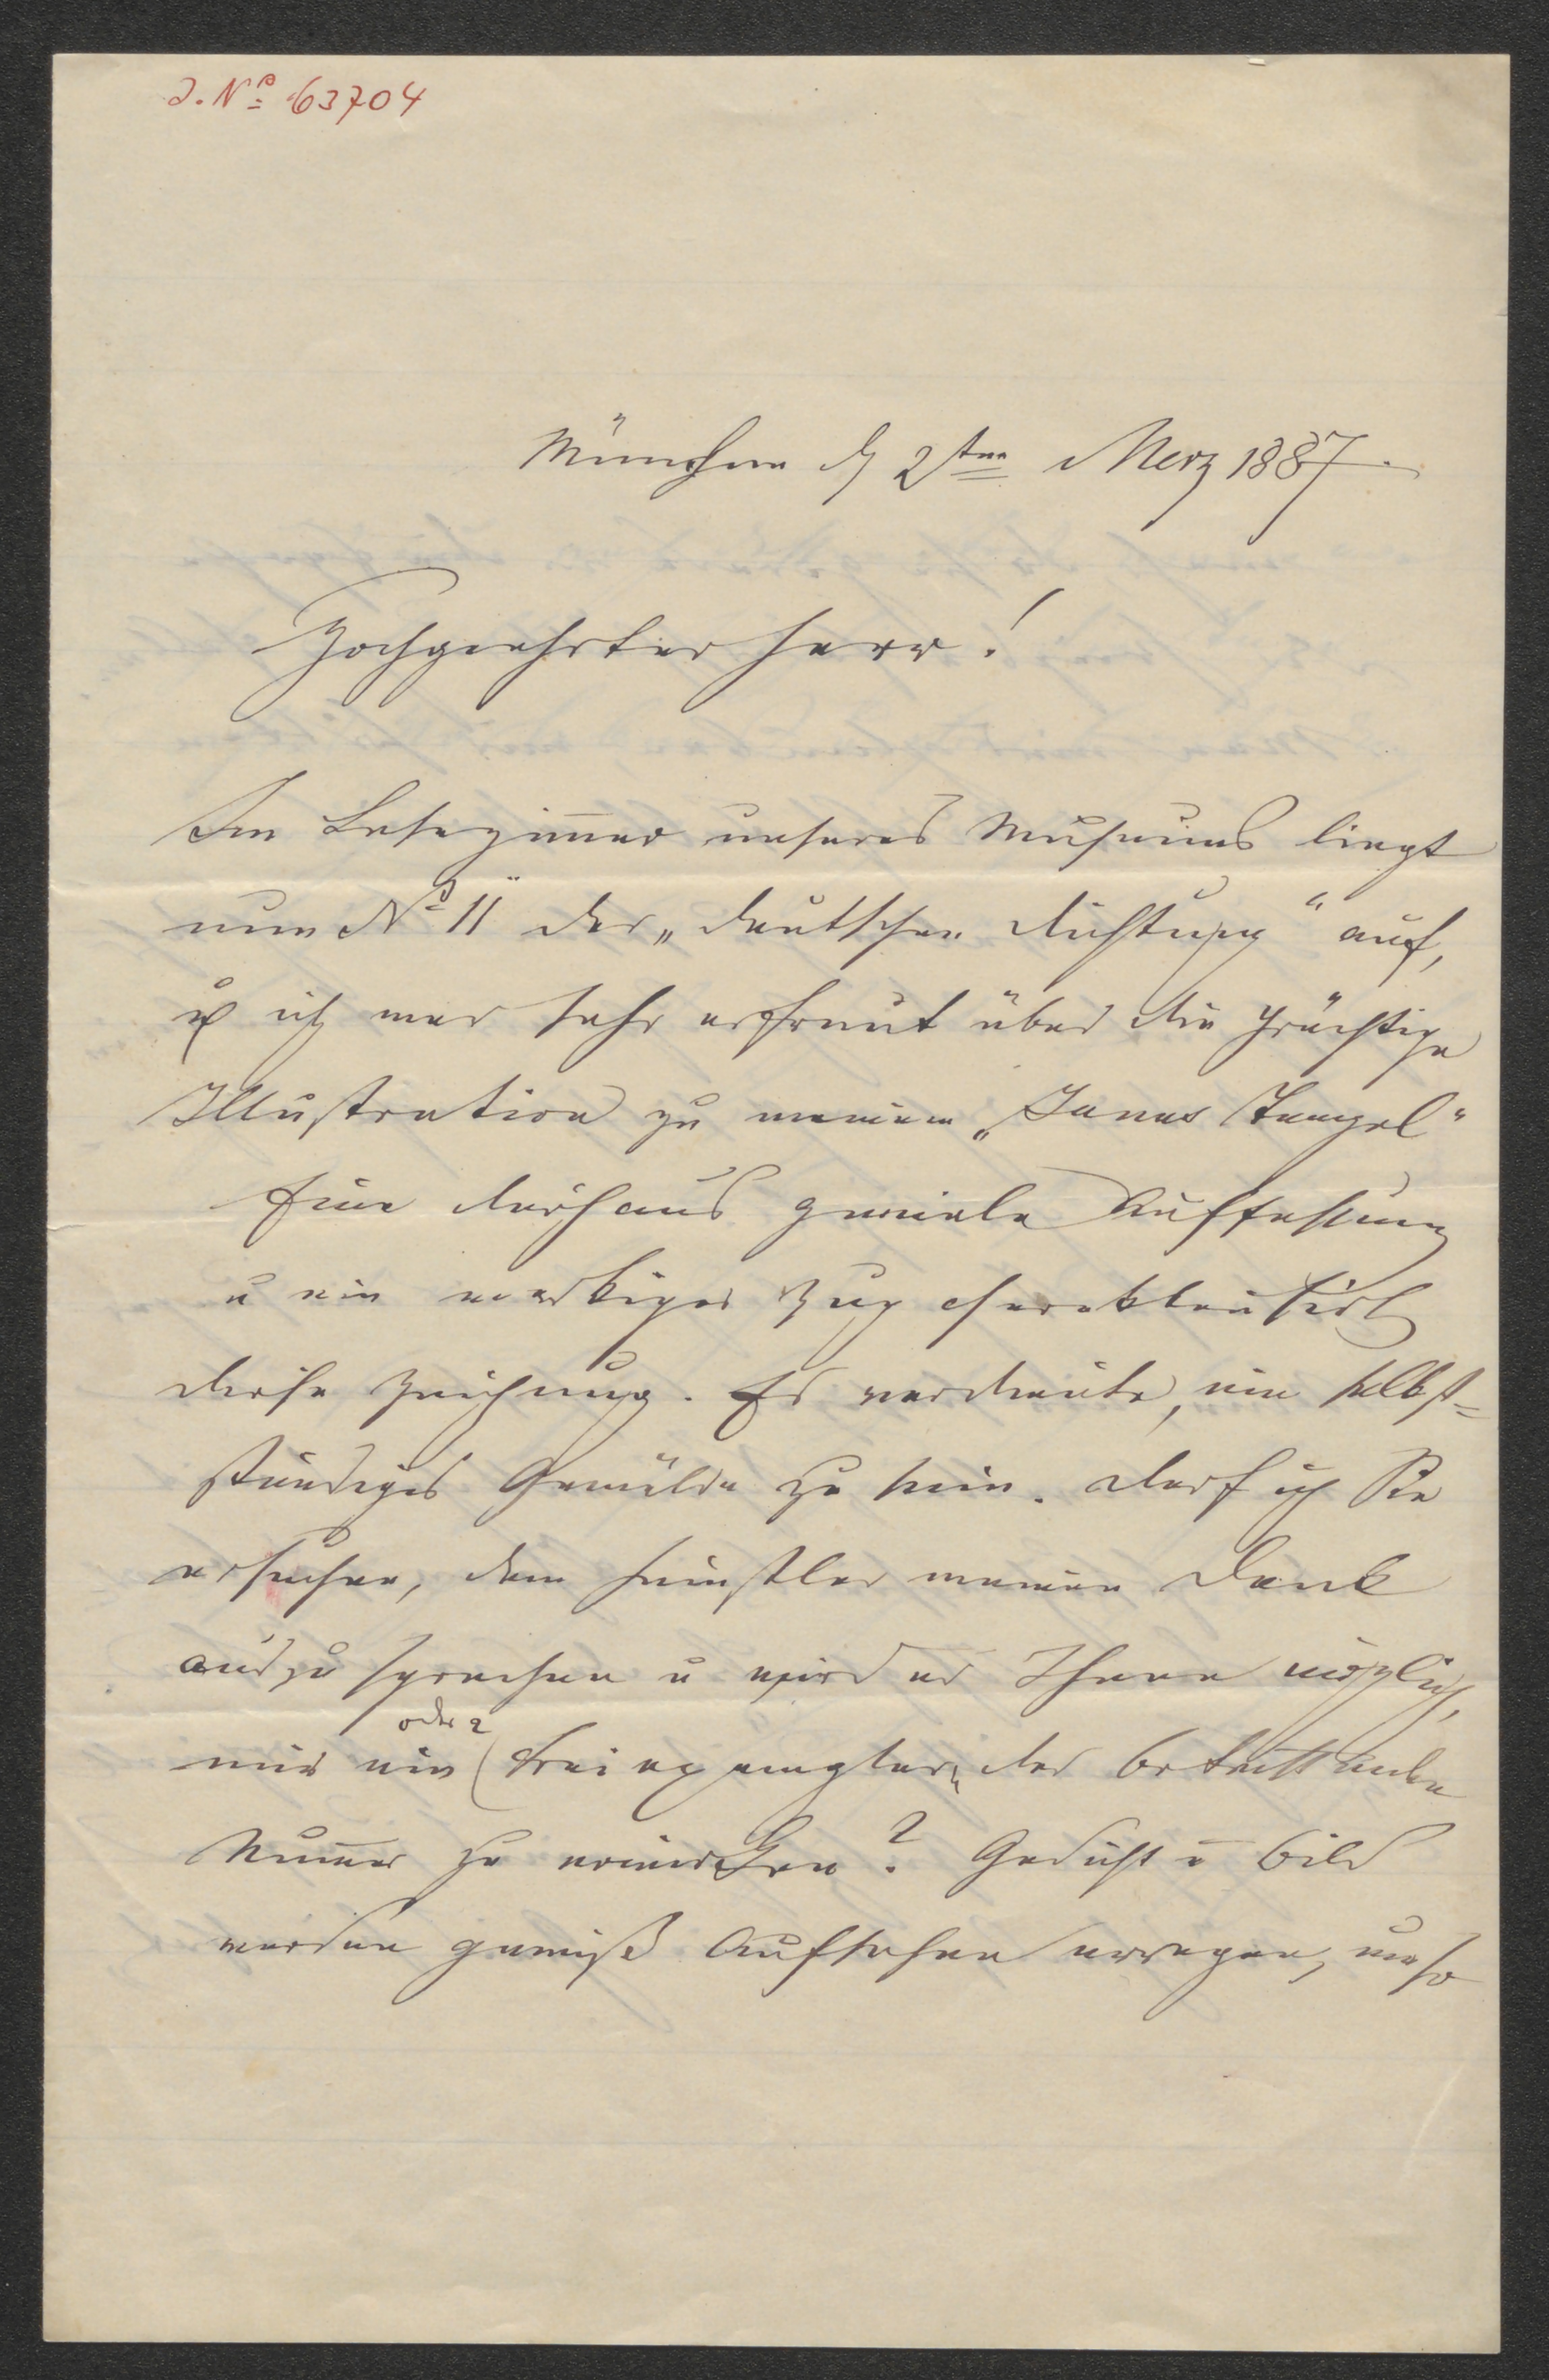 J. No 63704
München d 2ten Merz 1887.
Hochgeehrter Herr!
Im Lesezimmer unseres Museums liegt
nun No 11 der „Deutschen Dichtung" auf,
u ich war sehr erfreut über die prächtige
Illustration zu meinem „Janus Tempel"
Eine durchaus geniale Auffassung
u ein markiger Zug charakterisirt
diese Zeichnung. Es verdiente, ein selbst=
ständiges Gemälde zu sein. Darf ich Sie
ersuchen, dem Künstler meinen Dank
auszusprechen u wird es Ihnen möglich,
mir ein (oder 2) Freiexemplar der betreffenden
Numer zu Gedicht u Bild
werden gewiß Aufsehen erregen, umso